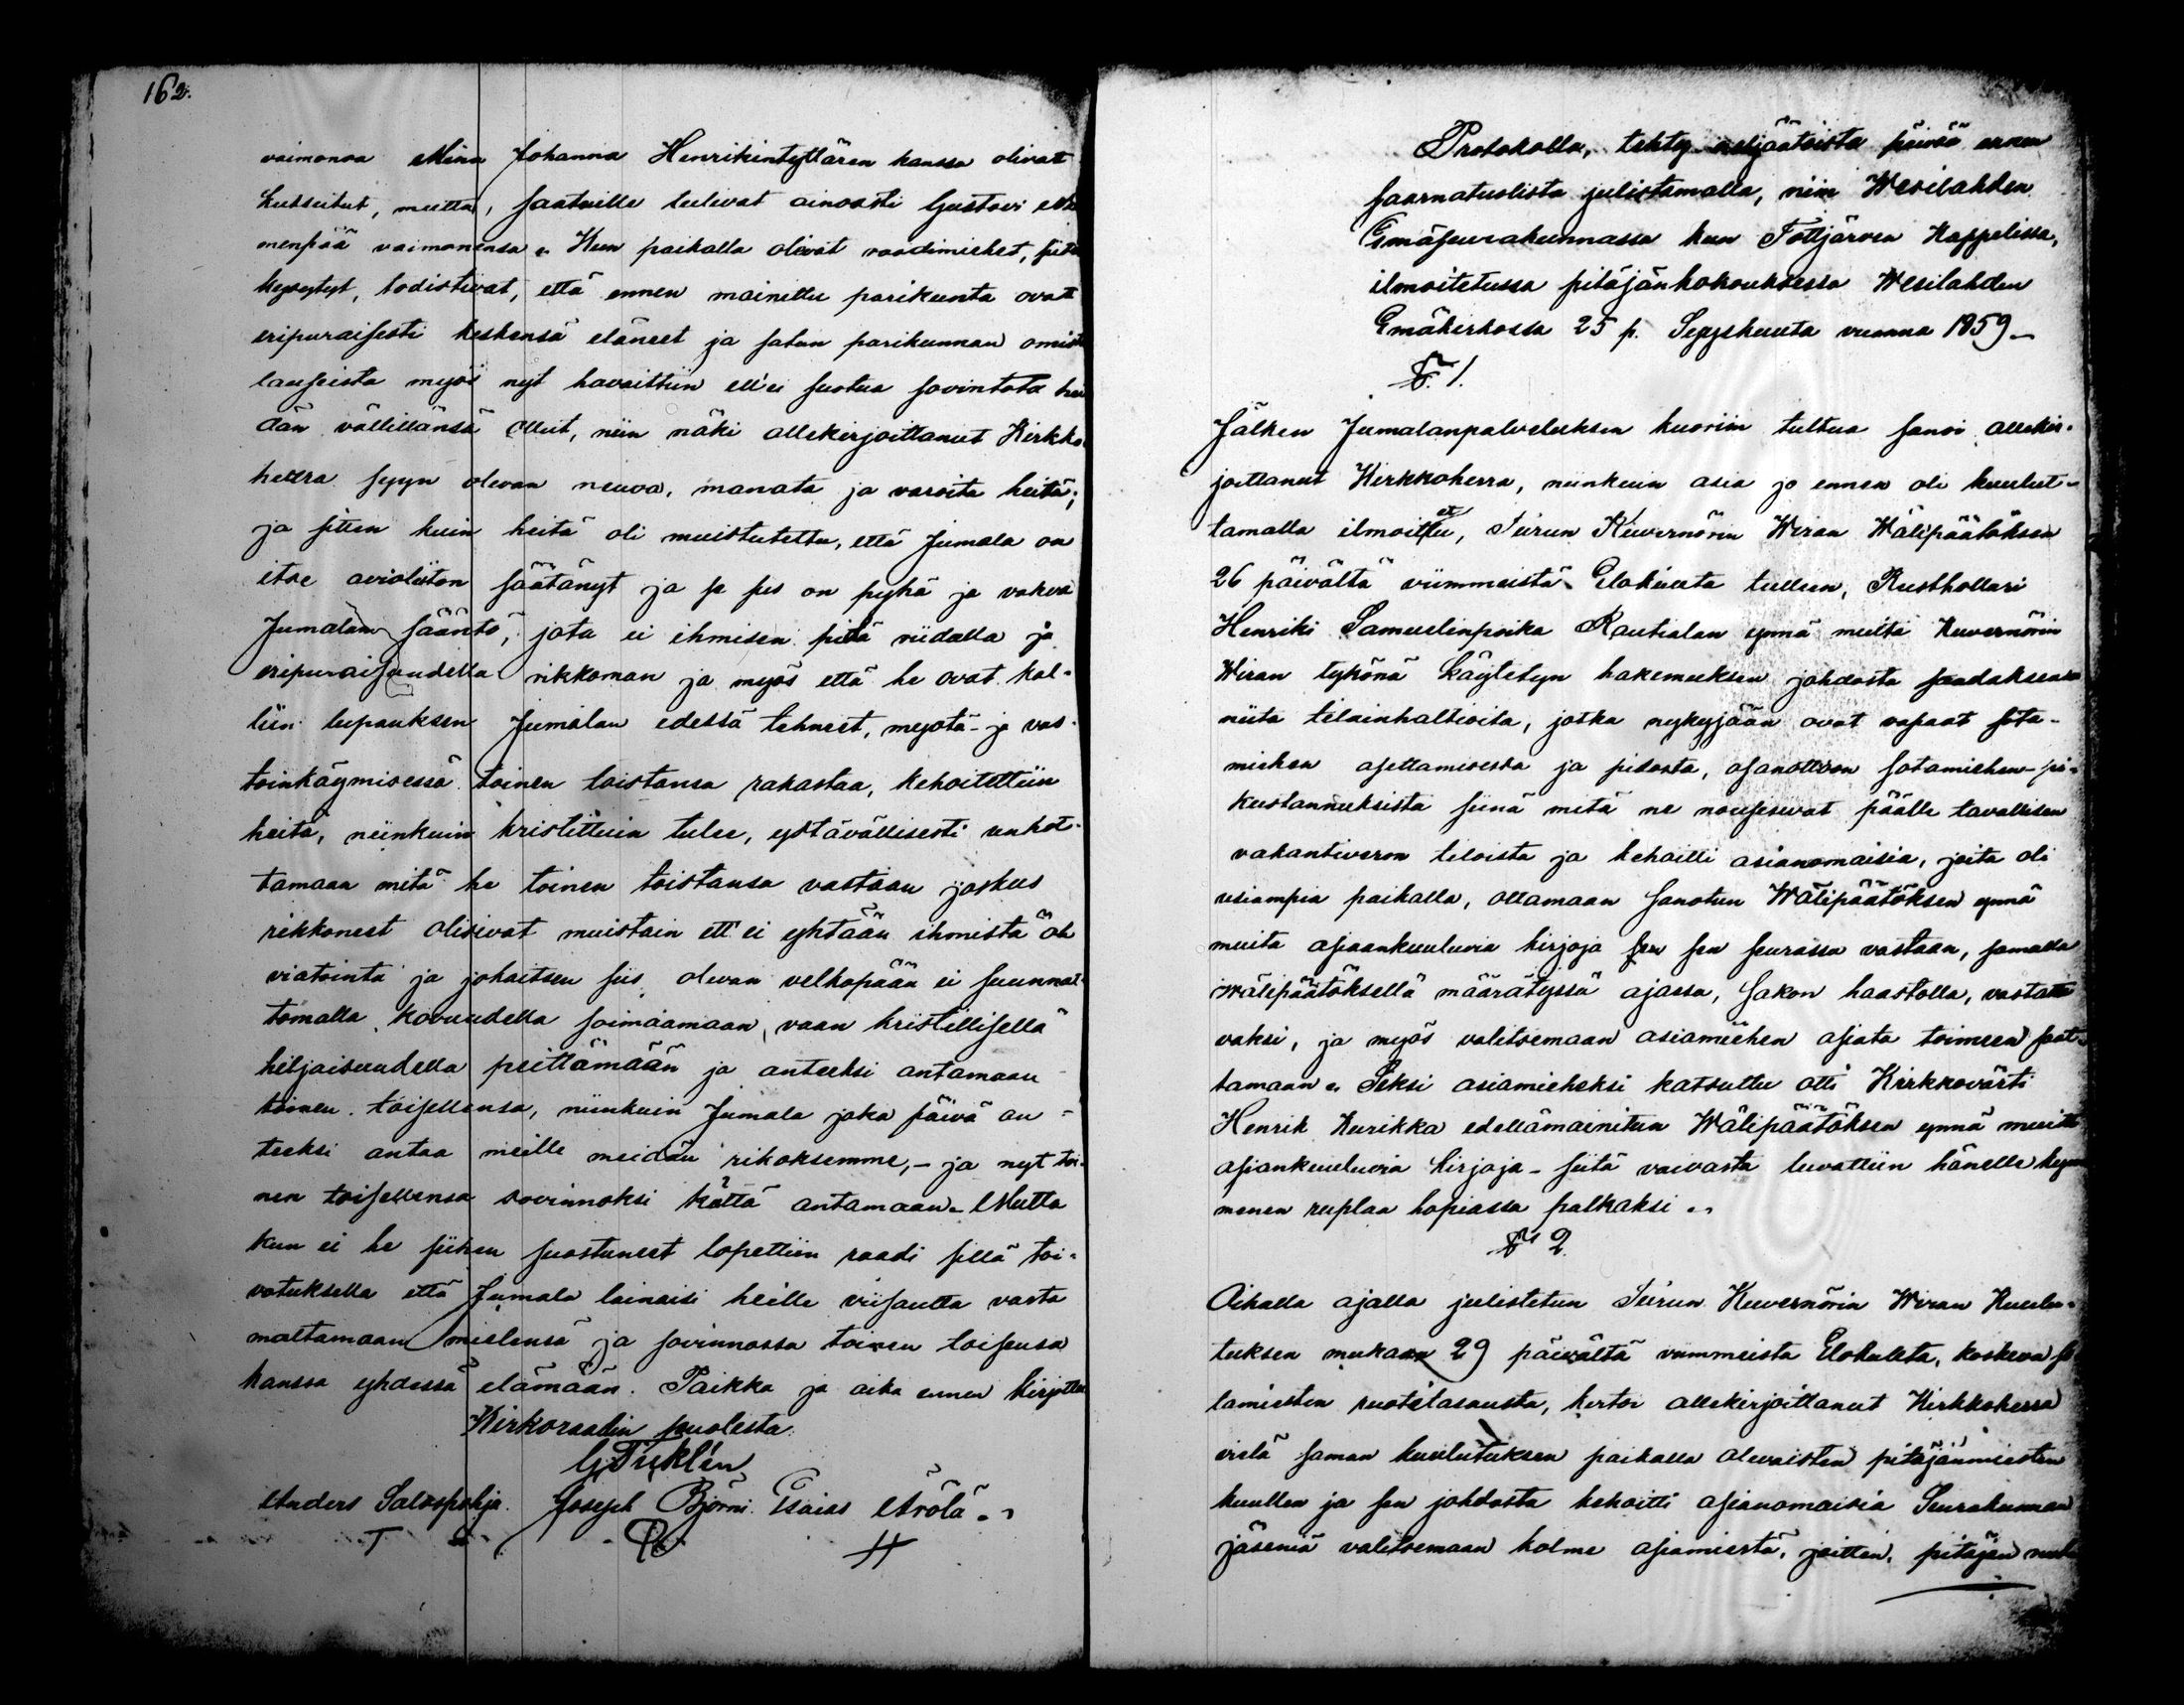 162.
vaimonsa Miina Johanna Henrikintyttären kanssa olivat
kutsutut, mutta, saatuille tulivat ainoasti Gustavi
menpää vaimonensa. Kun paikalla olivat raadimiehet, siitä
kysytyt, todistivat, että ennen mainittu parikunta ovat
eripuraisesti keskensä eläneet ja satun parikunnan omista
lauseista myös nyt havaittiin ett'ei suotua sovintota hei
dän välillänsä ollut, niin näki allekirjoittanut Kirkko
herra syyn olevan neuvoa, manata ja varoita heitä;
ja sitten kuin heitä oli muistutettu, että Jumala on
itse avioliiton säätänyt ja se siis on pyhä ja vakva
Jumalan sääntö, jota ei ihmisen pidä riidalla ja
eripuraisuudella rikkoman ja myös että he ovat kal-
liin lupauksen Jumalan edessä tehneet, myötä- ja vas-
toinkäymisessä toinen toistansa rakastaa, kehoitettiin
heitä, niinkuin kristittuin tulee, ystävällisesti unhot-
tamaan mitä he toinen toistansa vastaan joskus
rikkoneet olisivat muistain ett'ei yhtään ihmistä ole
viatointa ja jokaitsen siis olevan velkapään ei suunnat-
tomalla kovuudella soimaamaan, vaan kristillisellä
hiljaisuudella peittämään ja anteeksi antamaan
toinen toisellensa, niinkuin Jumala joka päivä an-
teeksi antaa meille meidän rikoksemme, - ja nyt toi-
nen toisellensa sovinnoksi kättä antamaan. Mutta
kun ei he siihen suostuneet lopettiin raadi sillä toi-
votuksella että Jumala lainaisi heille viisautta vasta
maltamaan mielensä ja sovinnossa toinen toisensa
kanssa yhdessä elämään. Paikka ja aika ennen kirjoitta
Kirkoraadin puolesta
G Ticklén
Anders Salospohja. Joseph Björni. Esaias Arölä.
Protokolla, tehty neljäätoista päivää ennen
saarnatuolista julistamalla, niin Wesilahden
Emäseurakunnassa kun Tottijärven Kappelissa,
ilmoitetussa pitäjänkokouksessa Wesilahden
Emäkirkossa 25 p. Syyskuuta vuonna 1859 -
§ 1.
Jälken Jumalanpalveluksen kuoriin tultua sanoi allekir-
joittanut Kirkkoherra, niinkuin asia jo ennen oli kuulut-
tamalla ilmoitettu, Turun Kuvernörin Wiran Wälipäätöksen
26 päivältä viimmeistä Elokuuta tulleen, Rusthollari
Henriki Samuelinpoika Rautialan ynnä muita Kuvernörin
Wiran tykönä käytetyn hakemuksen johdosta saadaksensa
niita tilainhaltioita, jotka nykyjään ovat vapaat sota-
miehen asettamisesta ja pidosta, osanottoon sotamiehen-pi-
kustannuksista siinä mitä ne nousisivat päälle tavallisen
vakantiveron tiloista ja kehoitti asianomaisia, joita oli
usiampia paikalla, ottamaan sanotun Wälipäätöksen ynnä
muita asiaankuuluvia kirjoja sen seurassa vastaan, samalla
Wälipäätöksellä määrätyssä ajassa, sakon haastolla, vastatta
vaksi, ja myös valitsemaan asiamiehen asiata toimeen saat-
tamaan. Seksi asiamieheksi katsuttu otti Kirkkovärti
Henrik Kurikka edellämainitun Wälipäätöksen ynnä muitta
asiankuuluvia kirjoja - siitä vaivasta luvattiin hänelle kym
menen ruplaa hopiassa palkaksi.
§ 2.
Oikalla ajalla julistetun Turun Kuvernörin Wiran Kuulu-
tuksen mukaan 29 päivältä viimmeista Elokuuta, koskeva so
tamiesten ruotitasausta, kertoi allekirjoittanut Kirkkoherra
vielä saman kuulutuksen paikalla olevaisten pitäjänmiesten
kuullen ja sen johdosta kehoitti asianomaisia Seurakunnan
jäseniä valitsemaan kolme asiamiestä, joitten, pitäjän